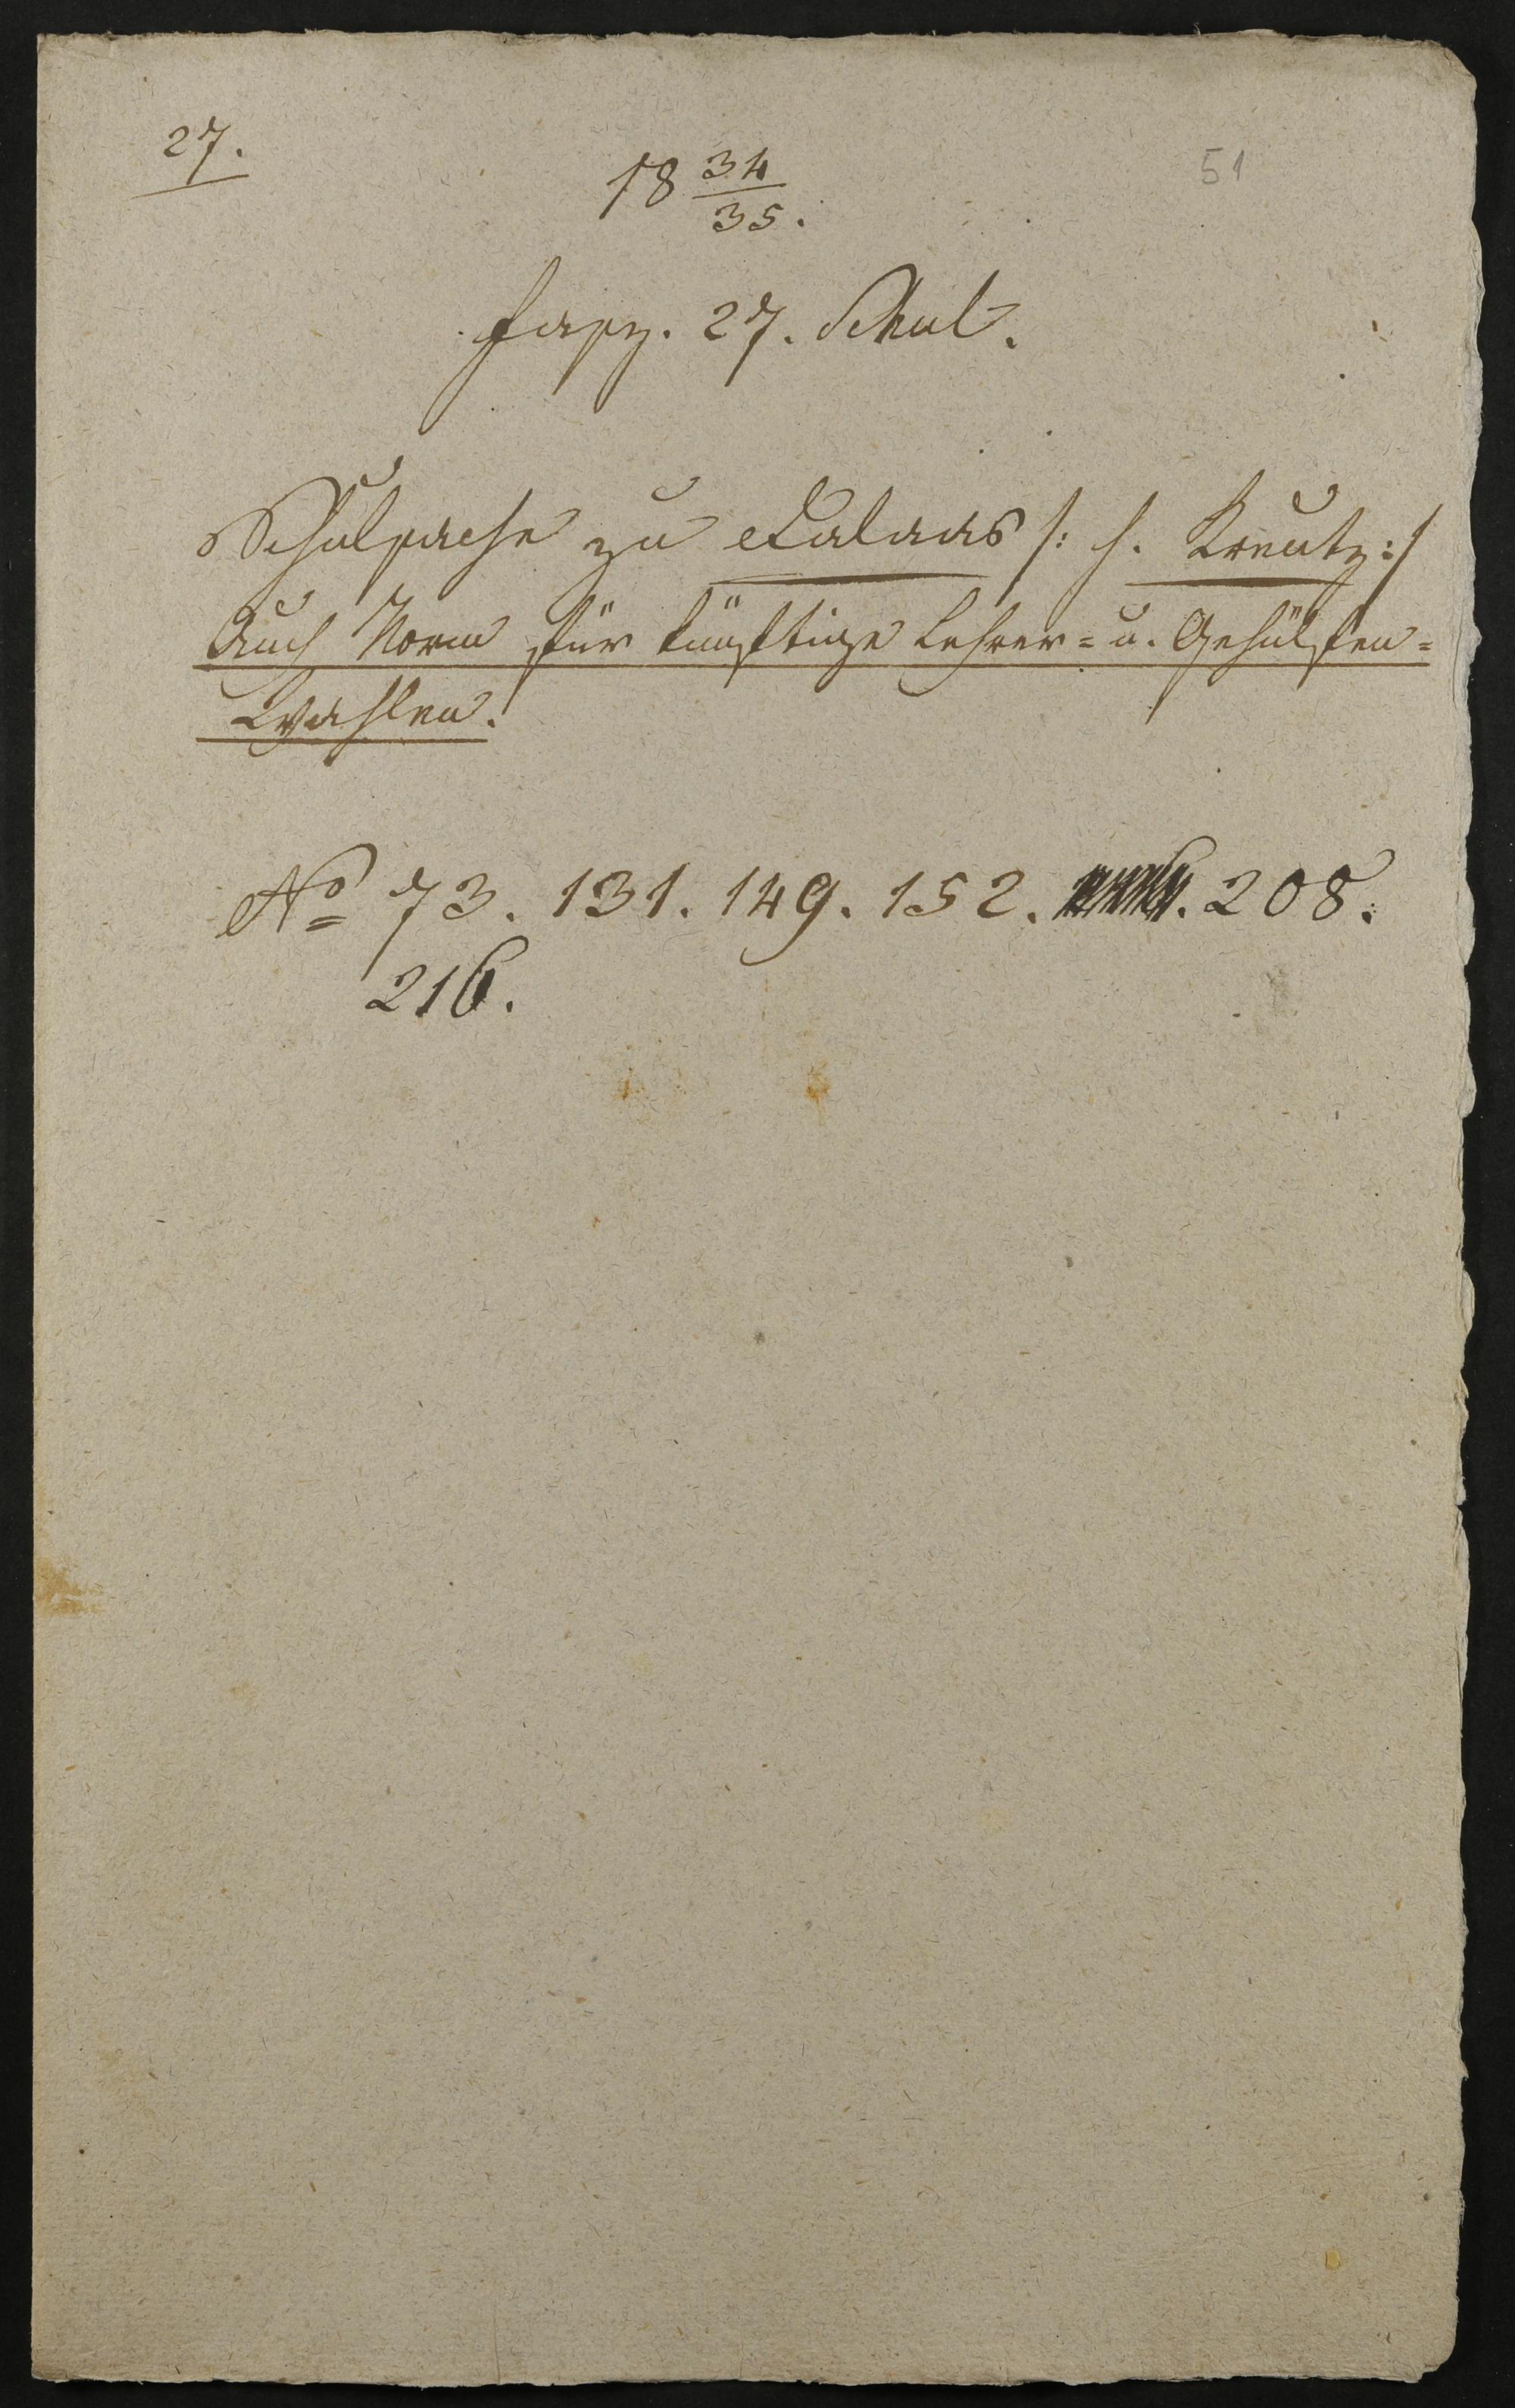 27.
18 34/35.
51
Fasz. 27. Schul.
Schulsache zu Dalaas /: h. Kreutz :/
Auch Norm für künftige Lehrer= u. Gehülfen=
Wahlen.
No 73. 131. 149. 152. 208.
216.